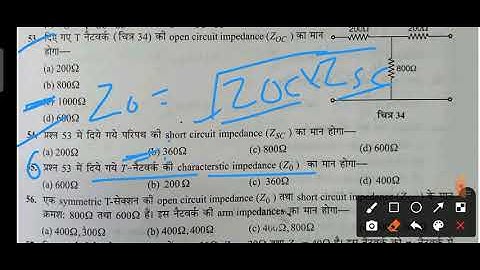 53. दिए गए T नैटवर्क (चित्र 34) की open circuit impedance (ZOC) का मान
होगा—
(a) 200Ω
(b) 800Ω
(c) 1000Ω
(d) 600Ω
Z0 = √ZOC × ZSC
200Ω 200Ω
800Ω
चित्र 34
54. प्रश्न 53 में दिये गये परिपथ की short circuit impedance (ZSC) का मान होगा—
(a) 200Ω (b) 360Ω (c) 800Ω (d) 600Ω
प्रश्न 53 में दिये गये T-नैटवर्क की characterstic impedance (Z0) का मान होगा—
(a) 600Ω (b) 200Ω (c) 360Ω (d) 400Ω
56. एक symmetric T-सेक्शन की open circuit impedance (Z0) तथा short circuit के मान
क्रमशः 800Ω तथा 600Ω हैं। इस नैटवर्क की arm impedances का मान होगा—
(a) 400Ω, 300Ω (b) 400Ω, 400Ω (c) 400Ω, 800Ω